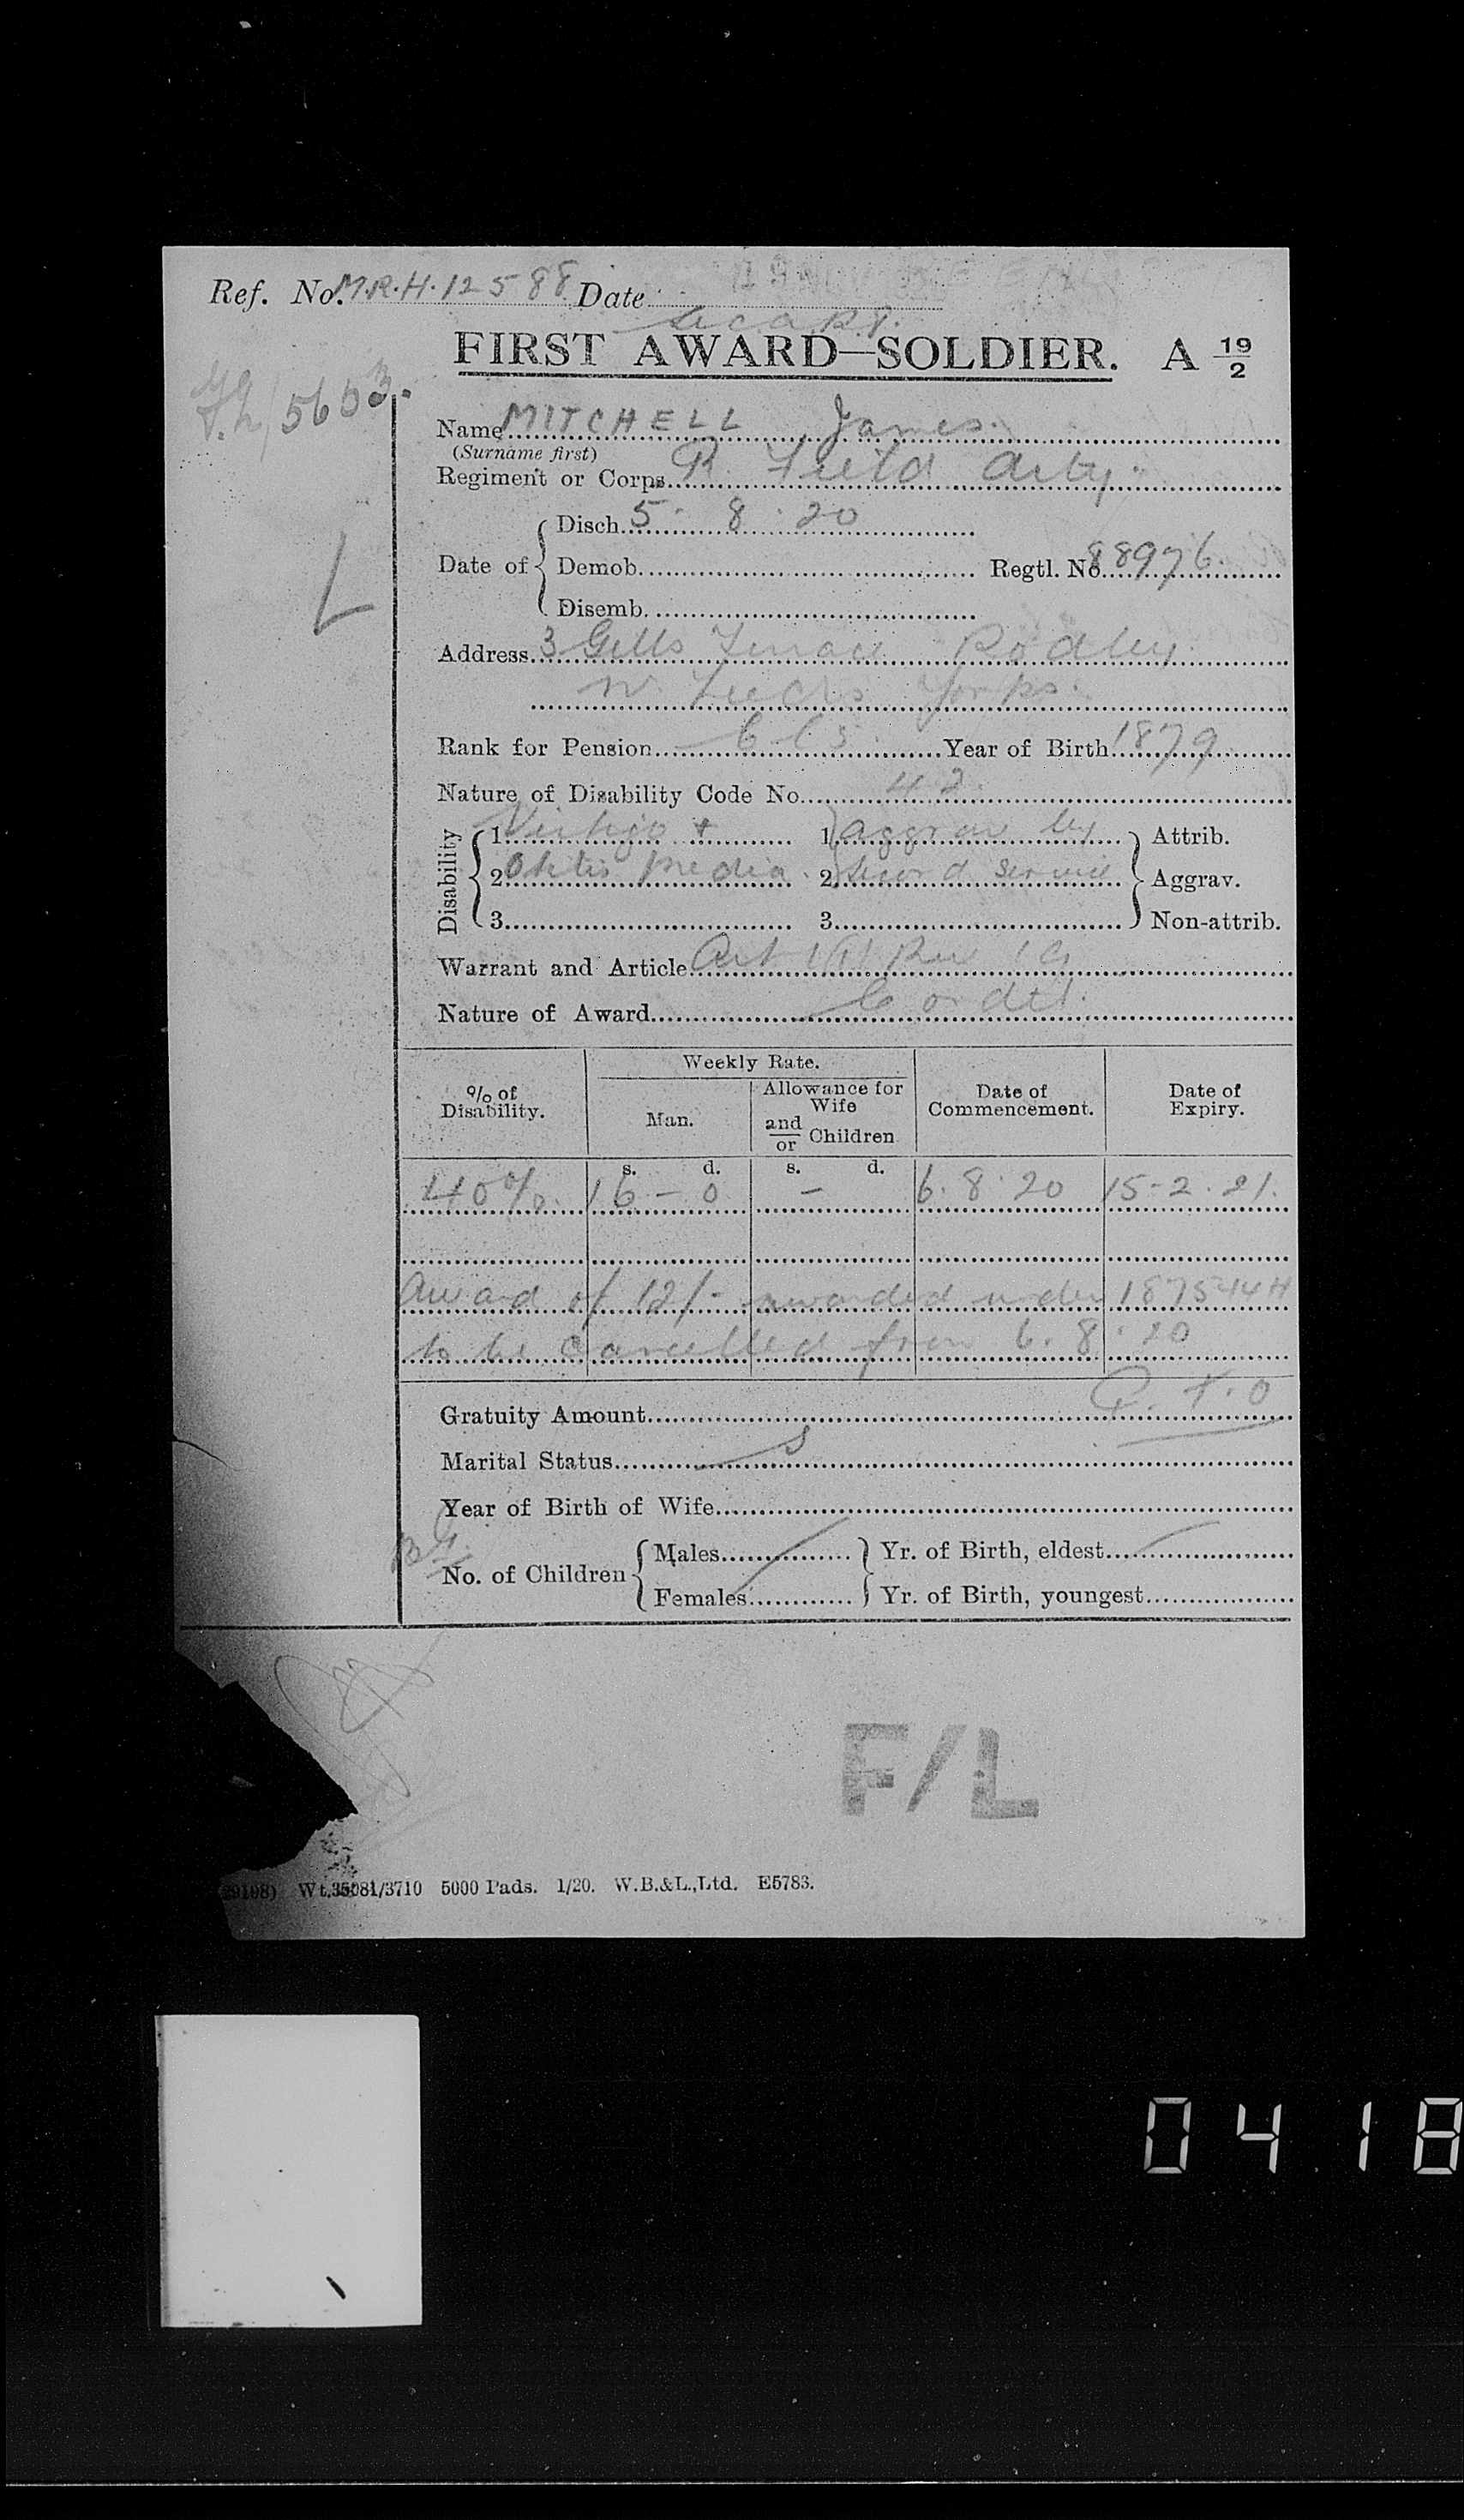 Ref. No. M.R.H. 12588 Date
FIRST AWARD—SOLDIER. A 19/2
5603.
Name MITCHELL James.
(Surname first)
Regiment or Corps R. Field Arty.
Date of
Disch. 5. 8. 20
Demob. Regtl. No. 88976.
Disemb.
Address. 3 Terrace Rodley.
Leeds Yorks.
Rank for Pension Year of Birth 1879
Nature of Disability Code No. 42.
Disability
1. Vertigo + 1. aggrav by Attrib.
2. Otitis Media. 2. service Aggrav.
3. 3. Non-attrib.
Warrant and Article. Art 1(1)
Nature of Award
% of Disability. Weekly Rate. Man. Allowance for Wife and/or Children Date of Commencement. Date of Expiry.
s. d. s. d.
40%. 16 - 0 - 6. 8. 20 15-2.21.
Award of 12/- awarded under
to be cancelled from 6. 8. 20
P.T.O
Gratuity Amount
Marital Status S
Year of Birth of Wife
No. of Children
Males Yr. of Birth, eldest
Females Yr. of Birth, youngest
F/L
Wt.35081/3710 5000 Pads. 1/20. W.B.&L.,Ltd. E5783.
0418